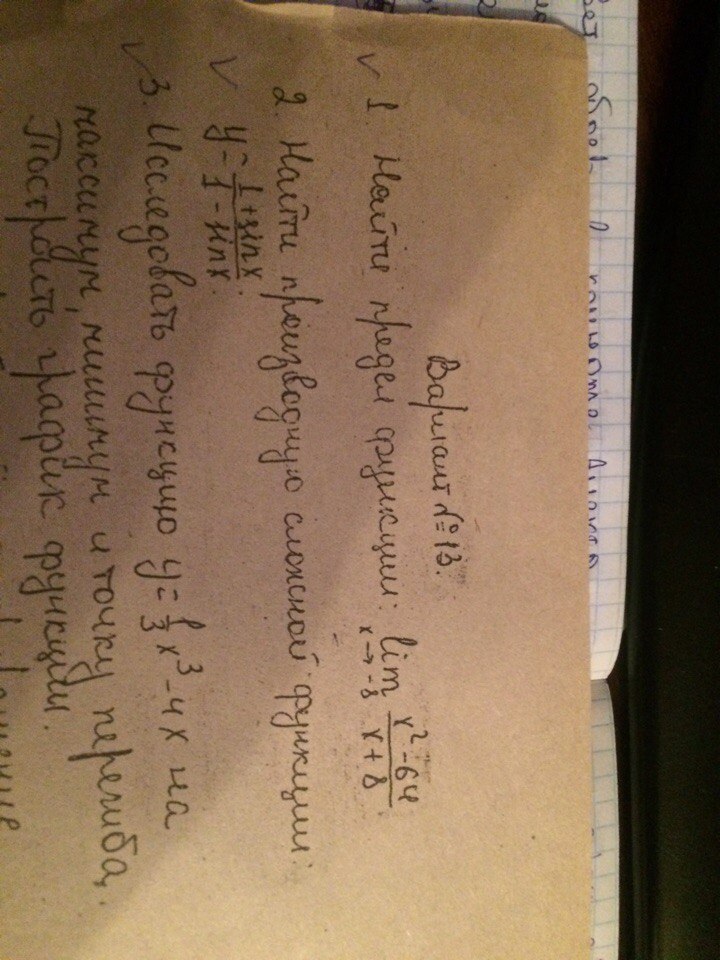 Вариант №13.
1. Найти предел функции: lim x→-8 x²-64 / x+8
2. Найти производную сложной функции:
y = 1+sinx / 1-sinx.
3. Исследовать функцию y = 1/3 x³ - 4x на
максимум, минимум и точку перегиба.
Построить график функции.